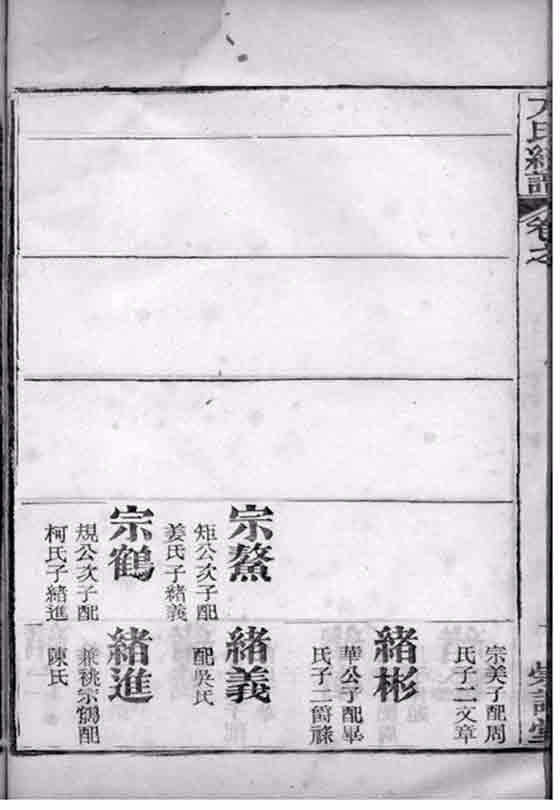 方氏續譜
卷之
宗美子配周
氏子二文章
緒彬
華公子配畢
氏子二爵祿
宗鰲
矩公次子配
姜氏子緒義
緒義
配吳氏
宗鶴
規公次子配
柯氏子緒進
緒進
兼祧宗鶴配
陳氏